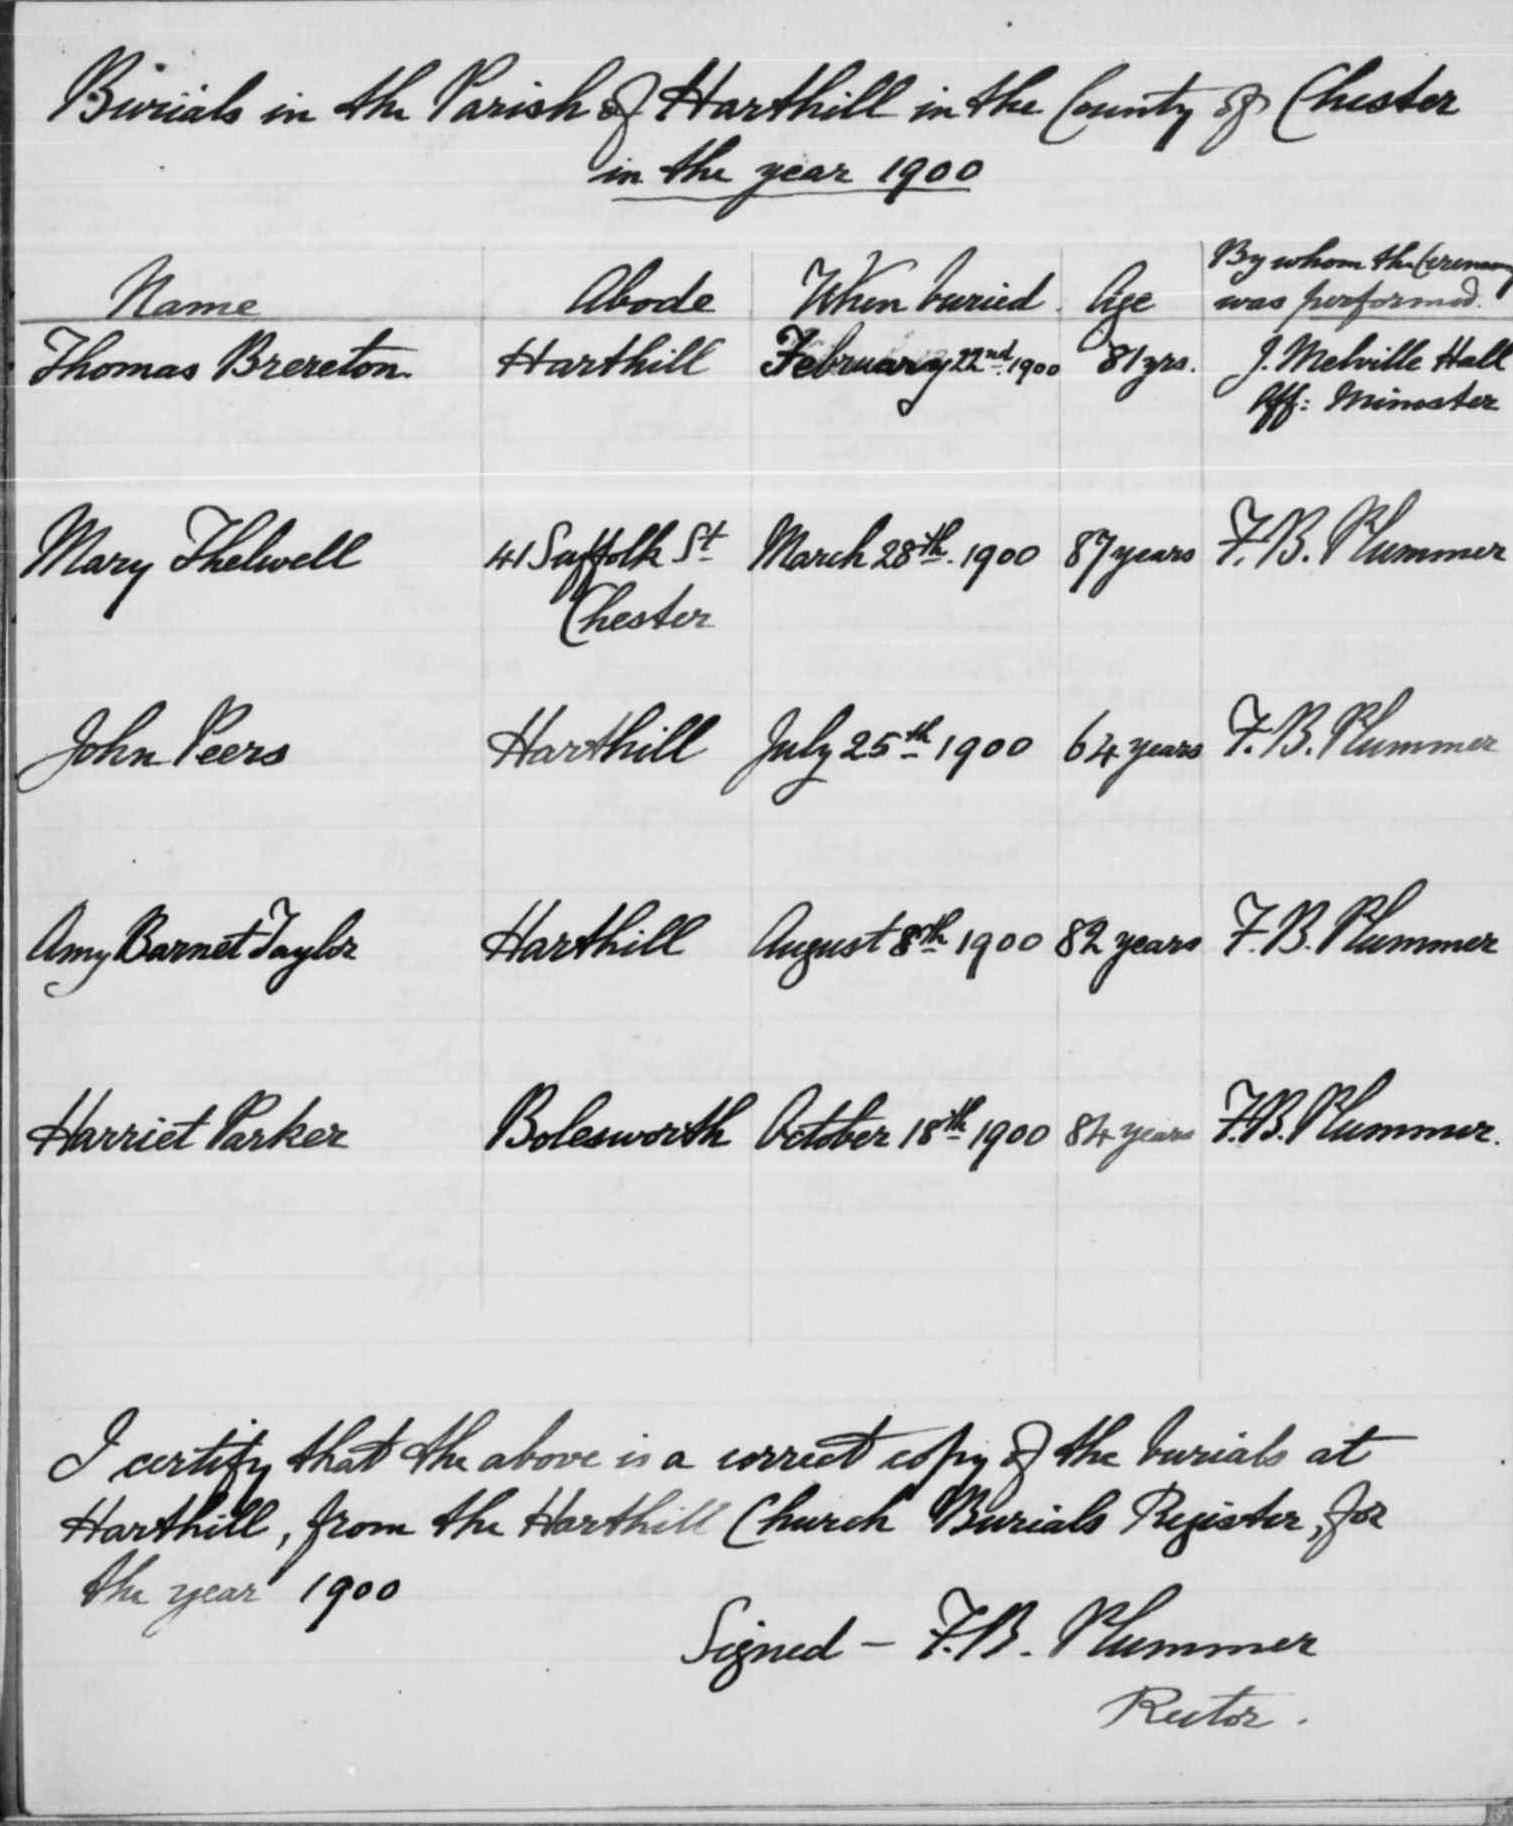 Burials in the Parish of Harthill in the County of Chester
in the year 1900
Name Abode When buried Age By whom the Ceremony was performed.
Thomas Brereton Harthill February 22nd. 1900 81 yrs. J. Melville Hall
Off: Minister
Mary Thelwell 41 Suffolk St March 28th. 1900 87 years F. B. Plummer
Chester
John Peers Harthill July 25th 1900 64 years F. B. Plummer
Amy Barnet Taylor Harthill August 8th 1900 82 years F. B. Plummer
Harriet Parker Bolesworth October 18th 1900 84 years F. B. Plummer.
I certify that the above is a correct copy of the burials at
Harthill, from the Harthill Church Burials Register, for
the year 1900
Signed – F. B. Plummer
Rector.